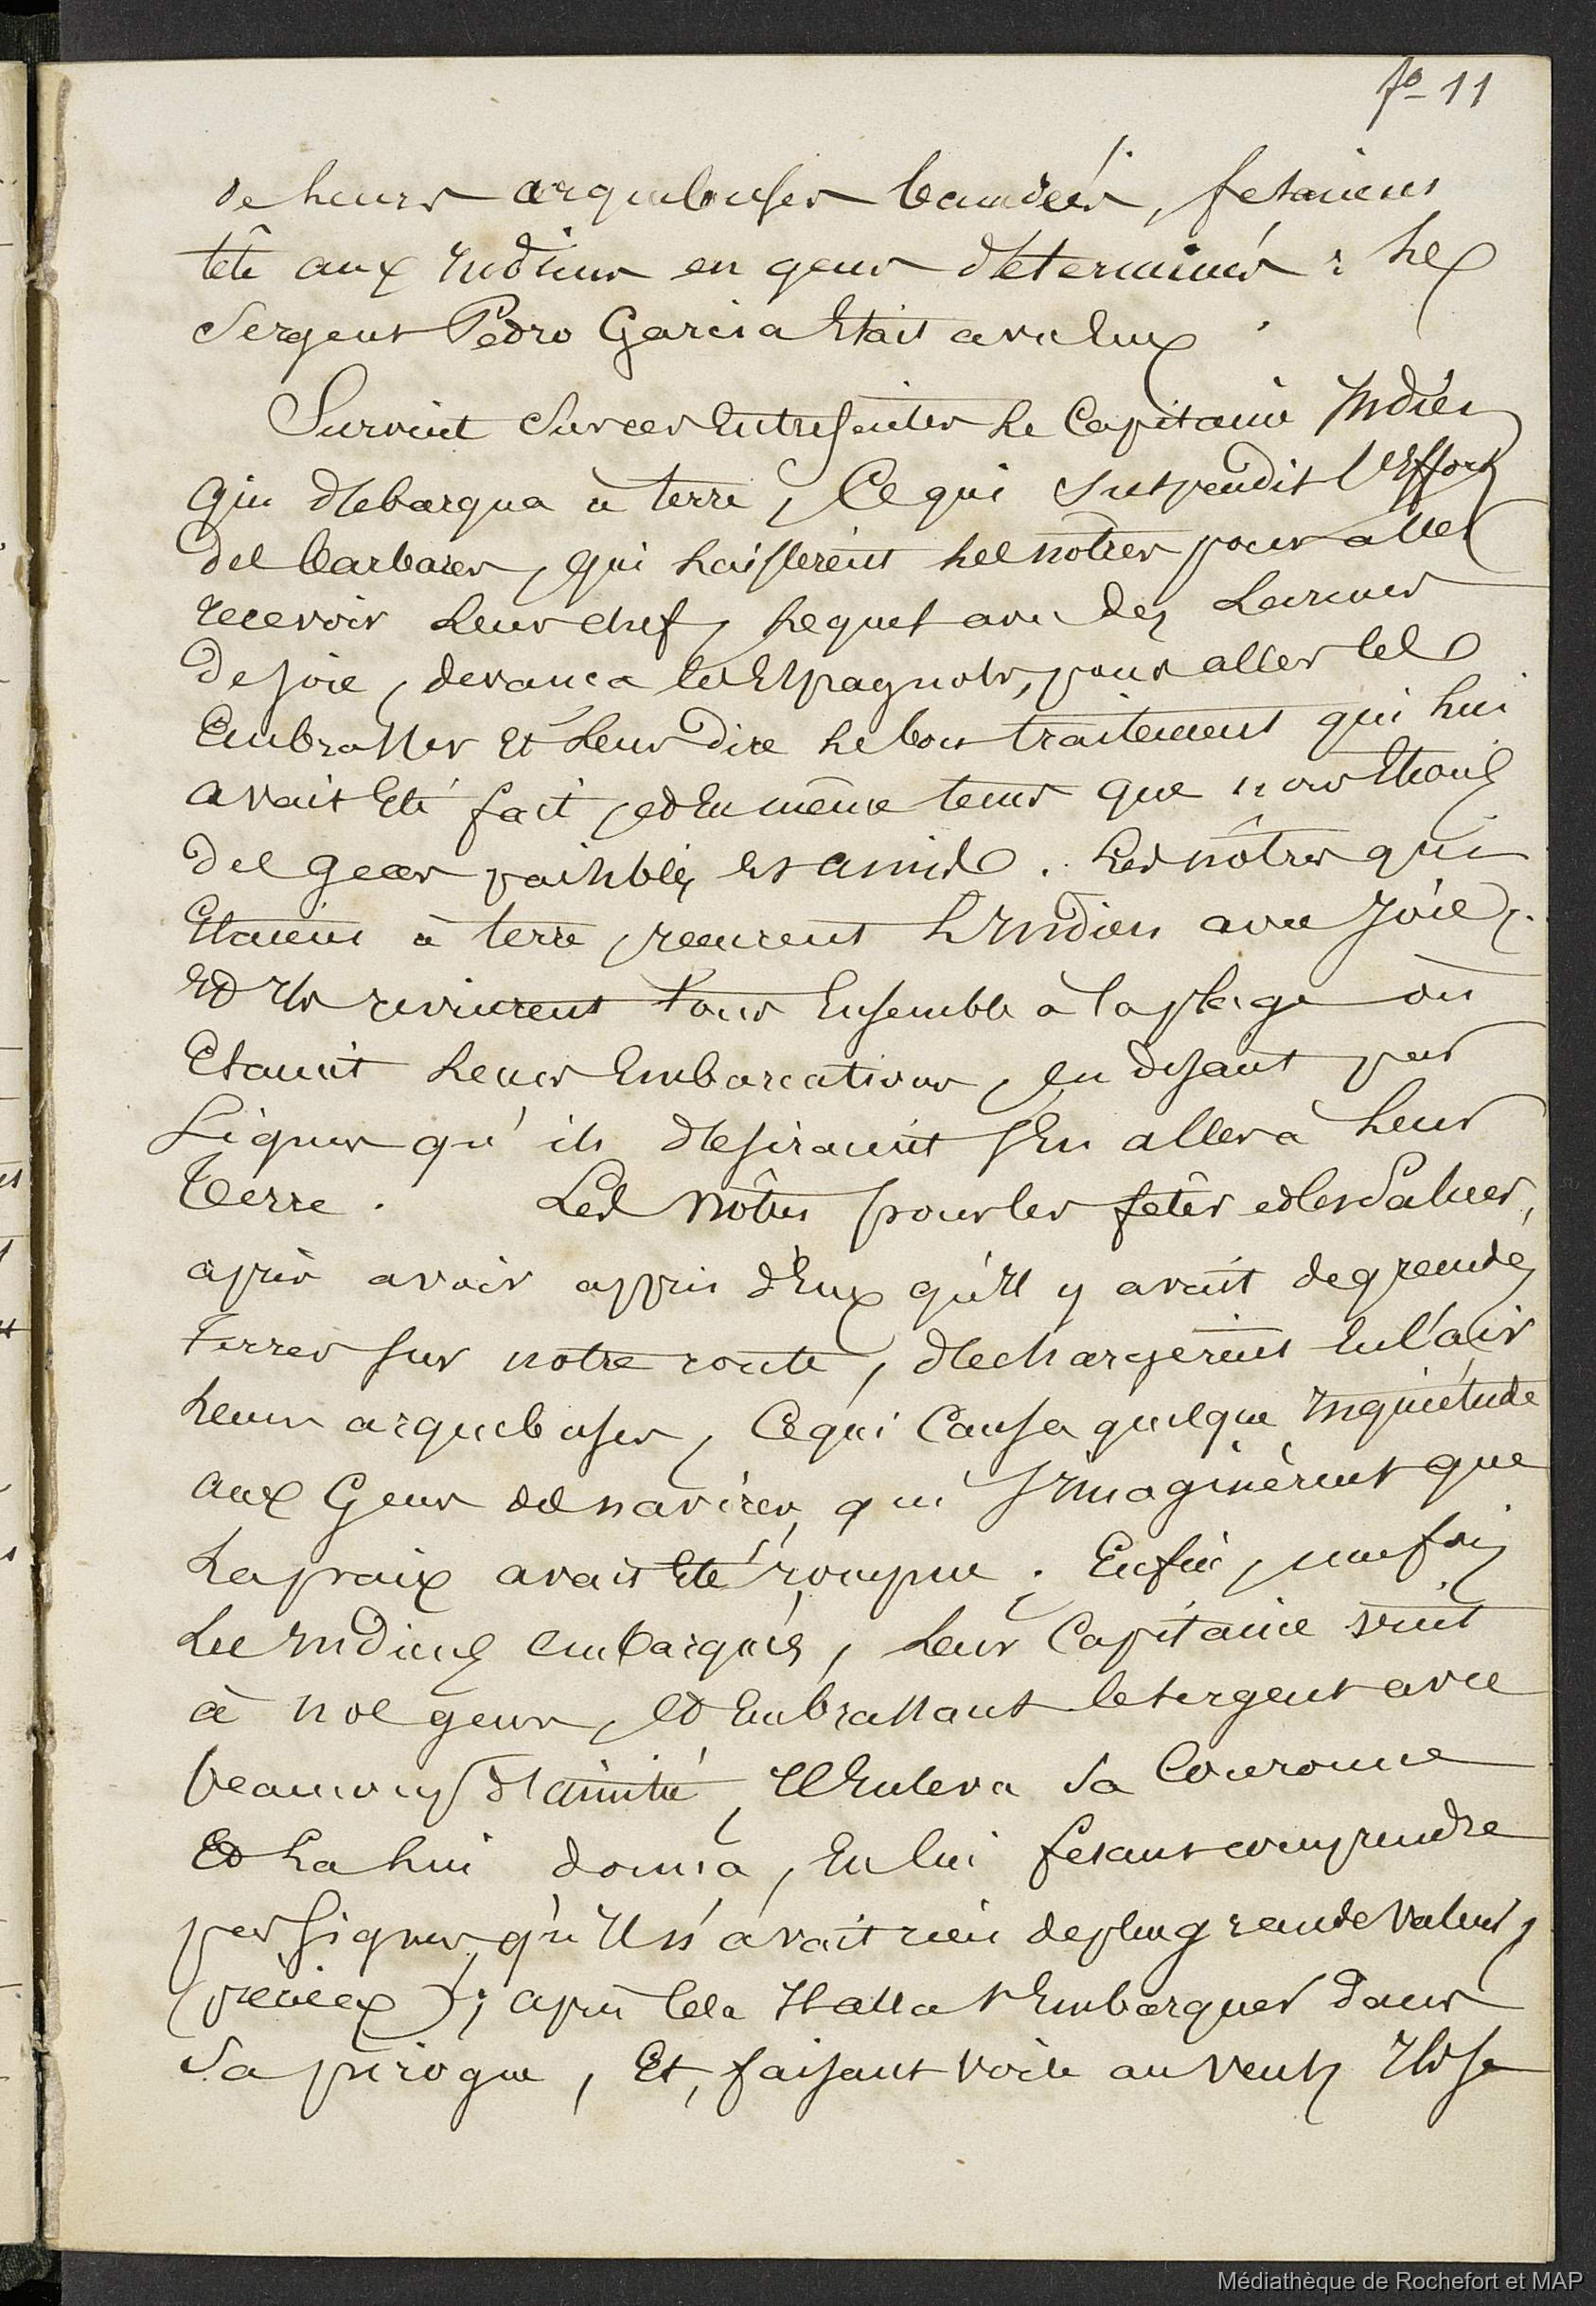 fo- 11
de leurs arquebuses bandées, fesaient
tête aux Indiens en gens déterminés : Le
Sergent Pedro Garcia Etait avec Eux.
Survint Sur ces Entrefaites Le Capitaine Indien
qui débarqua à terre, Ce qui Suspendit l'Effort
des barbares, qui Laissèrent les nôtres pour aller
recevoir Leur chef, Lequel avec des Larmes
de joie, devança les Espagnols, pour aller les
Embrasser Et Leur Dire le bon traitement qui lui
avait Eté fait, et En même tems que nous Etions
des gens paisibles Et amis. Les nôtres qui
Etaient à terre, reçurent L'Indien avec joie,
Et Ils revinrent tous Ensemble à la plage où
Etaient Leurs Embarcations, En disant par
Signes qu'ils désiraient S'En aller à Leur
Terre. Les Nôtres pour les fêter et les Saluer,
après avoir appris d'Eux qu'Il y avait de grandes
terres sur notre route, déchargèrent En l'air
Leurs arquebuses, Ce qui Causa quelque Inquiétude
aux Gens des navires, qui S'Imaginèrent que
La paix avait Eté rompue. Enfin, une fois
Les Indiens embarqués, Leur Capitaine vint
à nos gens, Et Embrassant le sergent avec
beaucoup d'amitié, Il Enleva Sa Couronne
Et La Lui donna, En lui fesant comprendre
par Signes, qu'Il n'avait rien de plus grande Valeur,
(précieux); après Cela Il alla S'Embarquer dans
Sa pirogue, Et, faisant voile au vent, Ils se
Médiathèque de Rochefort et MAP